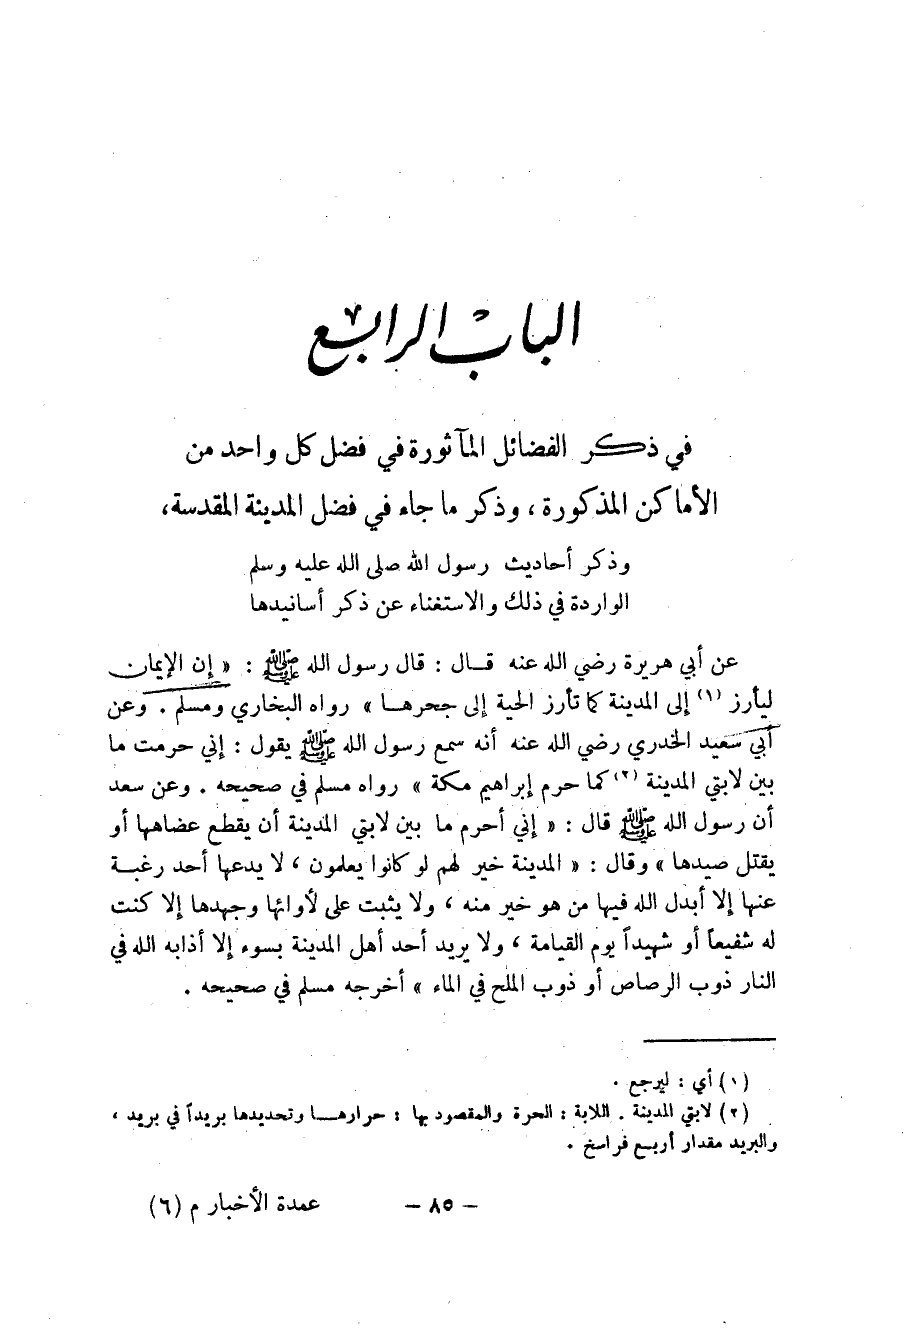 الباب الرابع
في ذكر الفضائل المأثورة في فضل كل واحد من
الأماكن المذكورة ، وذكر ما جاء في فضل المدينة المقدسة،
وذكر أحاديث رسول الله صلى الله عليه وسلم
الواردة في ذلك والاستغناء عن ذكر أسانيدها
عن أبي هريرة رضي الله عنه قال : قال رسول الله ﷺ : « إن الإيمان
ليأرز (١) إلى المدينة كما تأرز الحية إلى جحرها » رواه البخاري ومسلم . وعن
أبي سعيد الخدري رضي الله عنه أنه سمع رسول الله ﷺ يقول : إني حرمت ما
بين لابتي المدينة (٢) كما حرم إبراهيم مكة » رواه مسلم في صحيحه . وعن سعد
أن رسول الله ﷺ قال : « إني أحرم ما بين لابتي المدينة أن يقطع عضاهها أو
يقتل صيدها » وقال : « المدينة خير لهم لو كانوا يعلمون ، لا يدعها أحد رغبة
عنها إلا أبدل الله فيها من هو خير منه ، ولا يثبت على لأوائها وجهدها إلا كنت
له شفيعاً أو شهيداً يوم القيامة ، ولا يريد أحد أهل المدينة بسوء إلا أذابه الله في
النار ذوب الرصاص أو ذوب الملح في الماء » أخرجه مسلم في صحيحه .
(١) أي : ليرجع .
(٢) لابتي المدينة . اللابة : الحرة والمقصود بها : حرارها وتحديدها بريداً في بريد ،
والبريد مقدار أربع فراسخ .
– ٨٥ –
عمدة الأخبار م (٦)